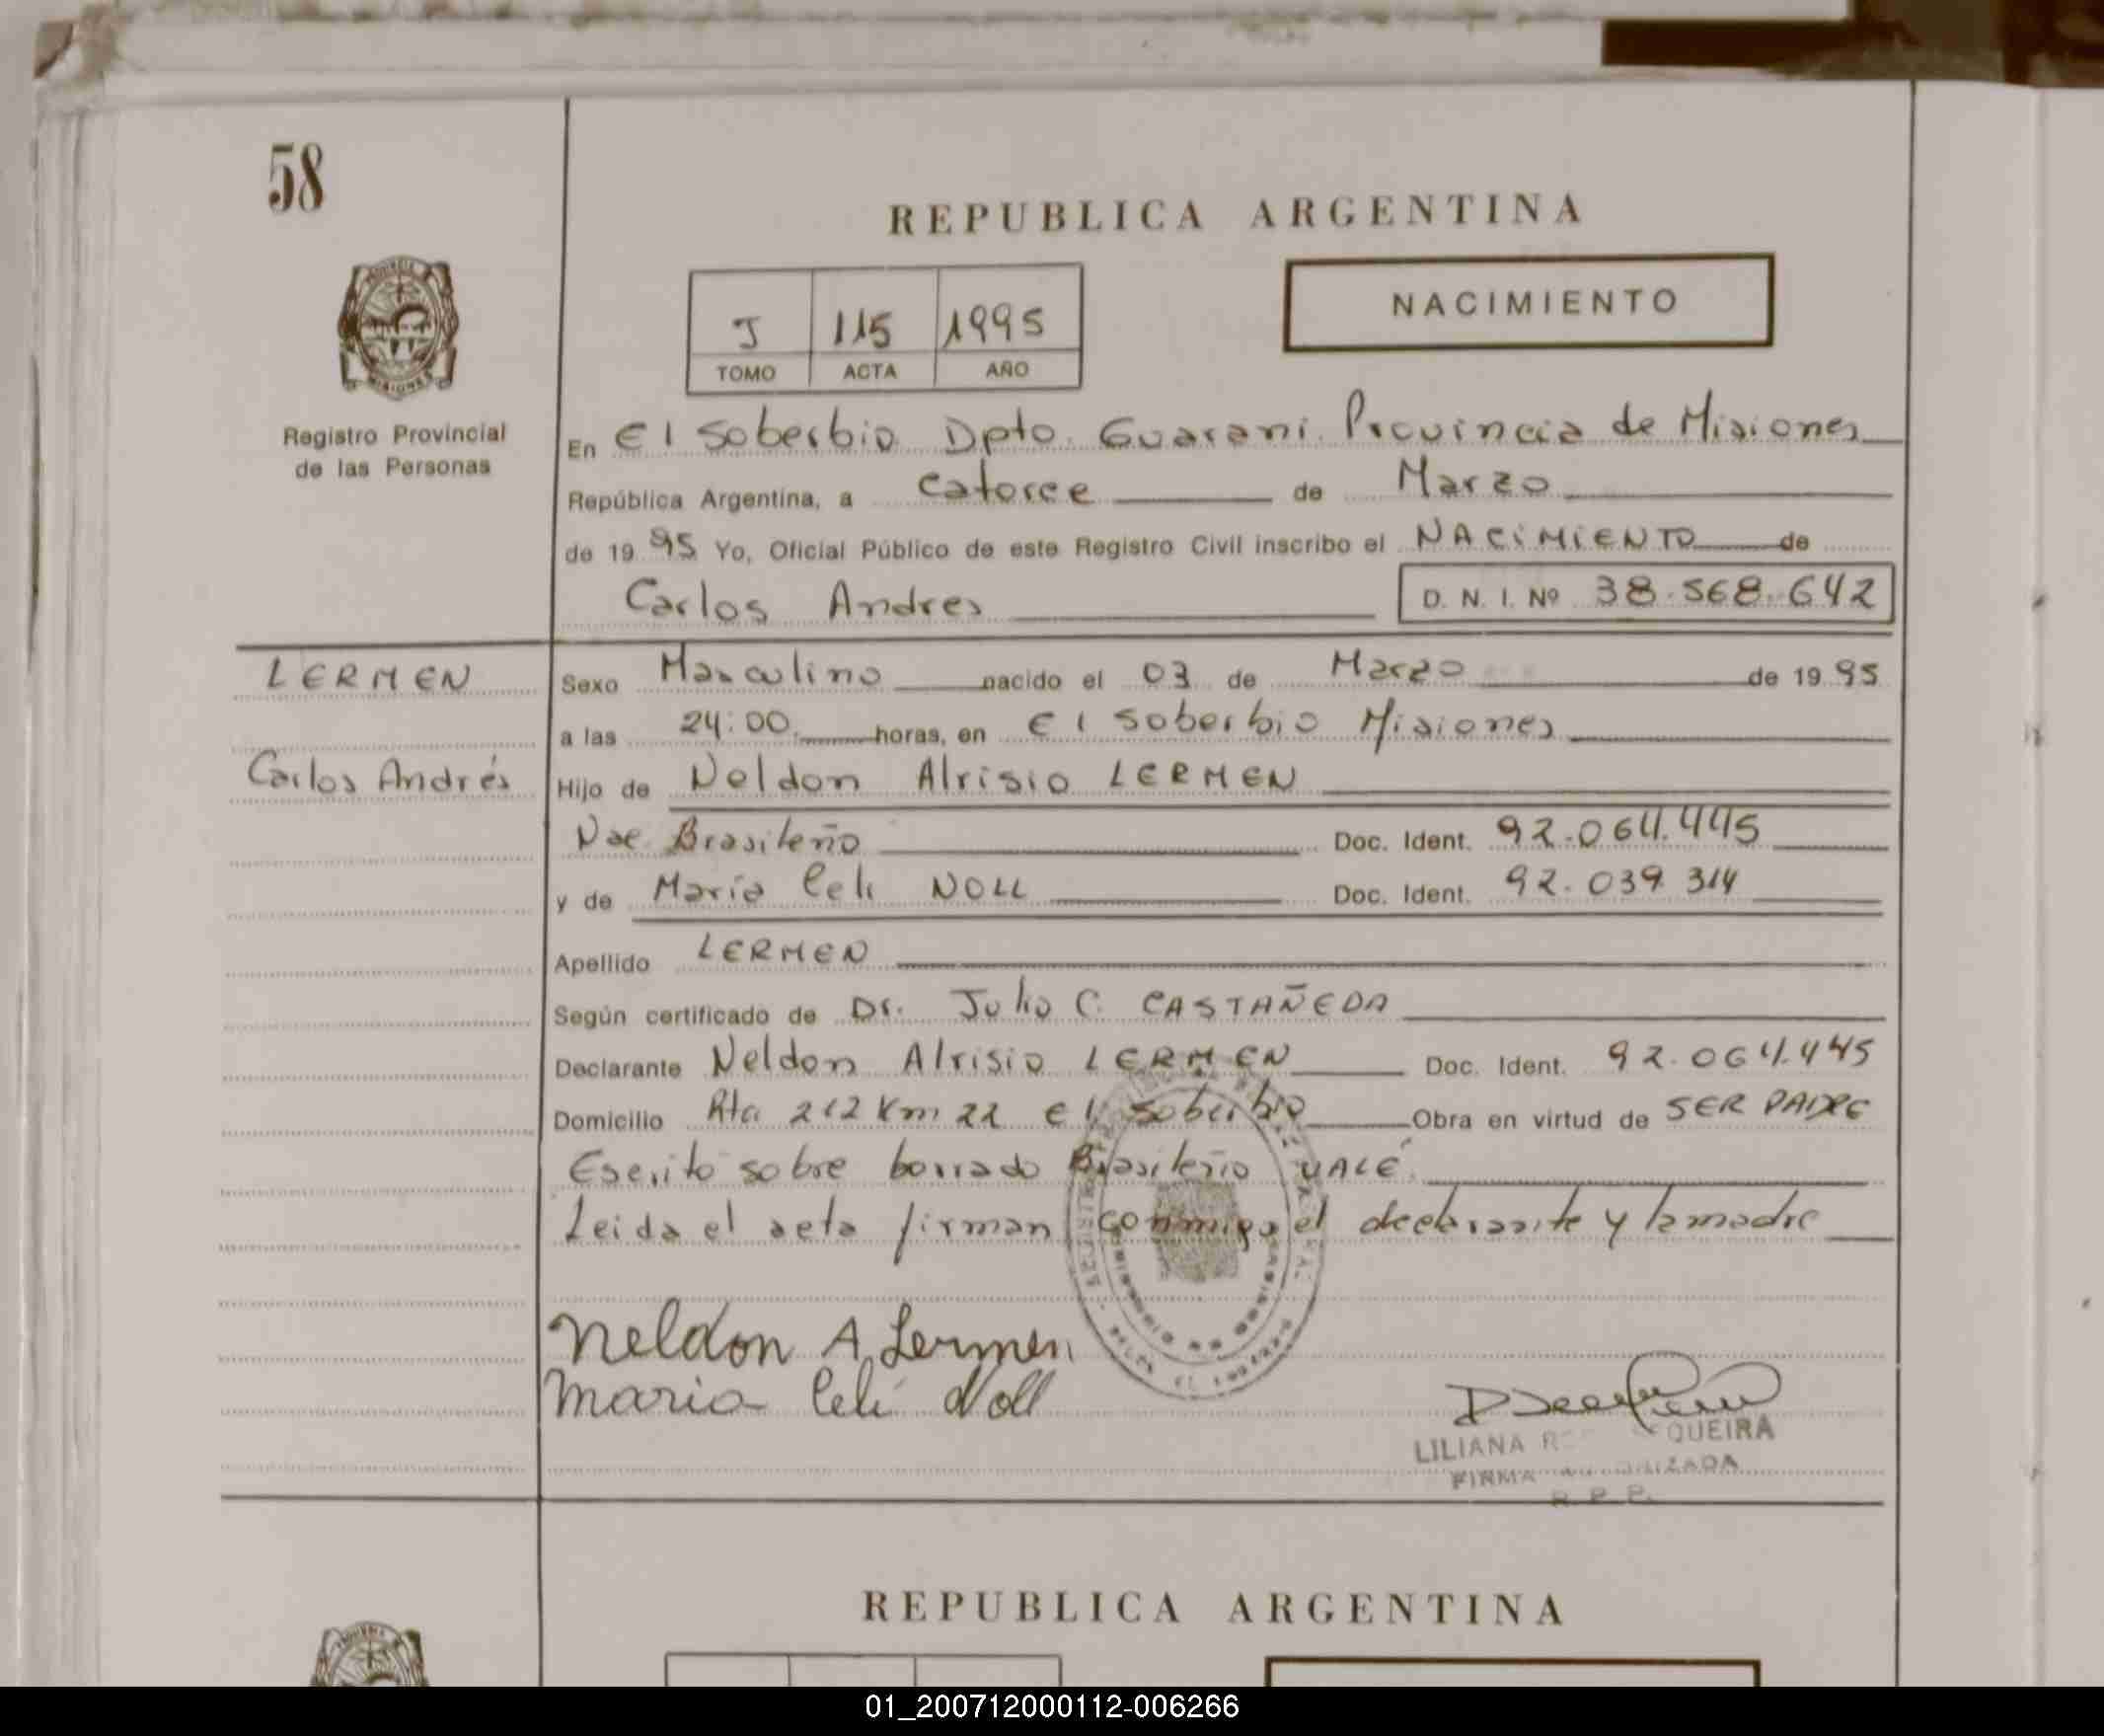 58
REPUBLICA ARGENTINA
NACIMIENTO
J 115 1995
TOMO ACTA AÑO
Registro Provincial
de las Personas
En El Soberbio Dpto. Guarani. Provincia de Misiones
República Argentina, a catorce de Marzo
de 19 95 Yo, Oficial Público de este Registro Civil inscribo el NACIMIENTO de
Carlos Andres D. N. I. Nº 38.568.642
LERMEN
Carlos Andrés
Sexo Masculino nacido el 03 de Marzo de 19 95
a las 24:00 horas, en El Soberbio Misiones
Hijo de Neldon Alrisio LERMEN
Nac. Brasileño Doc. Ident. 92.064.445
y de Maria Celi NOLL Doc. Ident. 92.039.314
Apellido LERMEN
Según certificado de Dr. Julio C. CASTAÑEDA
Declarante Neldon Alrisio LERMEN Doc. Ident. 92.064.445
Domicilio Rta 212 Km 22 El Soberbio Obra en virtud de SER PADRE
Escrito sobre borrado Brasileño VALE.
Leida el acta firman conmigo el declarante y la madre
Neldon A. Lermen
Maria Celi Noll
LILIANA QUEIRA
FIRMA
R. P. P.
REPUBLICA ARGENTINA
01_200712000112-006266